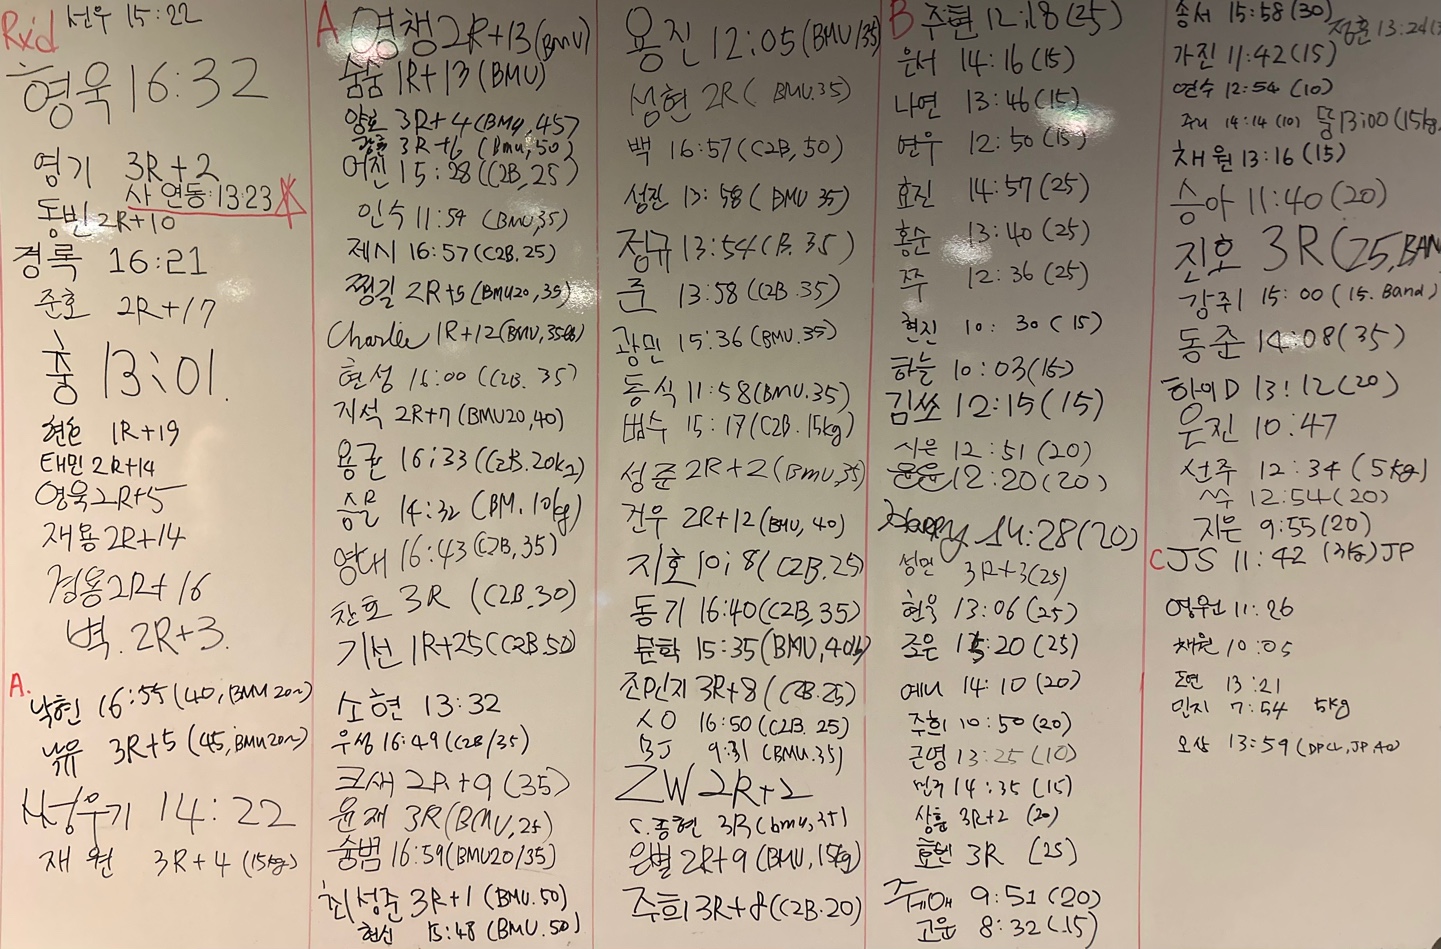 Rxd 선우 15:22
형욱 16:32
영기 3R+2
사 연동:13:23
동빈 2R+10
경록 16:21
준호 2R+17
훙 13:01.
현호 1R+19
태민 2R+14
영욱 2R+5
재용 2R+14
경용 2R+16
벽. 2R+3.
A.
낙현 16:55 (40, BMU 20in)
3R+5 (45, BMU 20in)
14:22
재원 3R+4 (15kg)
A 영챙 2R+13 (BMU)
숨숨 1R+13 (BMU)
양호 3R+4 (BMU, 45)
3R+6 (Bmu, 50)
어진 15:28 (C2B, 25)
인수 11:59 (BMU, 35)
제시 16:57 (C2B. 25)
찡길 2R+5 (BMU20, 35)
Charlie 1R+12 (BMU, 35lb)
현성 16:00 (C2B. 35)
지석 2R+7 (BMU20, 40)
용균 16:33 (C2B. 20kg)
승문 14:32 (BM. 10kg)
영대 16:43 (C2B, 35)
찬호 3R (C2B. 30)
기선 1R+25 (C2B. 50)
소현 13:32
우성 16:49 (C2B/35)
크새 2R+9 (35)
윤재 3R (BMU, 25)
숨범 16:59 (BMU20/35)
최성준 3R+1 (BMU. 50)
현신 15:48 (BMU. 50)
용진 12:05 (BMU/35)
성현 2R ( BMU. 35)
백 16:57 (C2B, 50)
성진 13:58 (BMU 35)
정규 13:54 (B. 35)
준 13:58 (C2B. 35)
광민 15:36 (BMU. 35)
동식 11:58 (BMU. 35)
범수 15:17 (C2B. 15kg)
성준 2R+2 (BMU, 35)
건우 2R+12 (BMU, 40)
지호 10:8 (C2B. 25)
동기 16:40 (C2B, 35)
문학 15:35 (BMU, 40lb)
조민지 3R+8 (C2B. 25)
16:50 (C2B. 25)
BJ 9:31 (BMU. 35)
ZW 2R+2
S. 종현 3R (bmu, 35)
은별 2R+9 (BMU, 15kg)
주희 3R+8 (C2B. 20)
B 주현 12:18 (35)
은서 14:16 (15)
나연 13:46 (15)
연우 12:50 (15)
효진 14:57 (25)
홍순 13:40 (25)
쭈 12:36 (25)
현진 10:30 (15)
하늘 10:03 (15)
김쏘 12:15 (15)
시은 12:51 (20)
윤윤 12:20 (20)
Happy 14:28 (20)
성민 3R+3 (25)
현욱 13:06 (25)
조은 15:20 (25)
예니 14:10 (20)
주희 10:50 (20)
근영 13:25 (10)
민주 14:35 (15)
상훈 3R+2 (20)
효빈 3R (25)
9:51 (20)
고운 8:32 (15)
송서 15:58 (30)
정훈 13:24
가진 11:42 (15)
연수 12:54 (10)
주니 14:14 (10) 뚱 13:00 (15kg)
채원 13:16 (15)
승아 11:40 (20)
진호 3R (25, BAN
강쥐 15:00 (15. Band)
동준 14:08 (35)
하이D 13:12 (20)
은진 10:47
선주 12:34 (5kg)
쓰수 12:54 (20)
지은 9:55 (20)
C JS 11:42 JP
영원 11:26
채원 10:05
도현 13:21
민지 7:54 5kg
오상 13:59